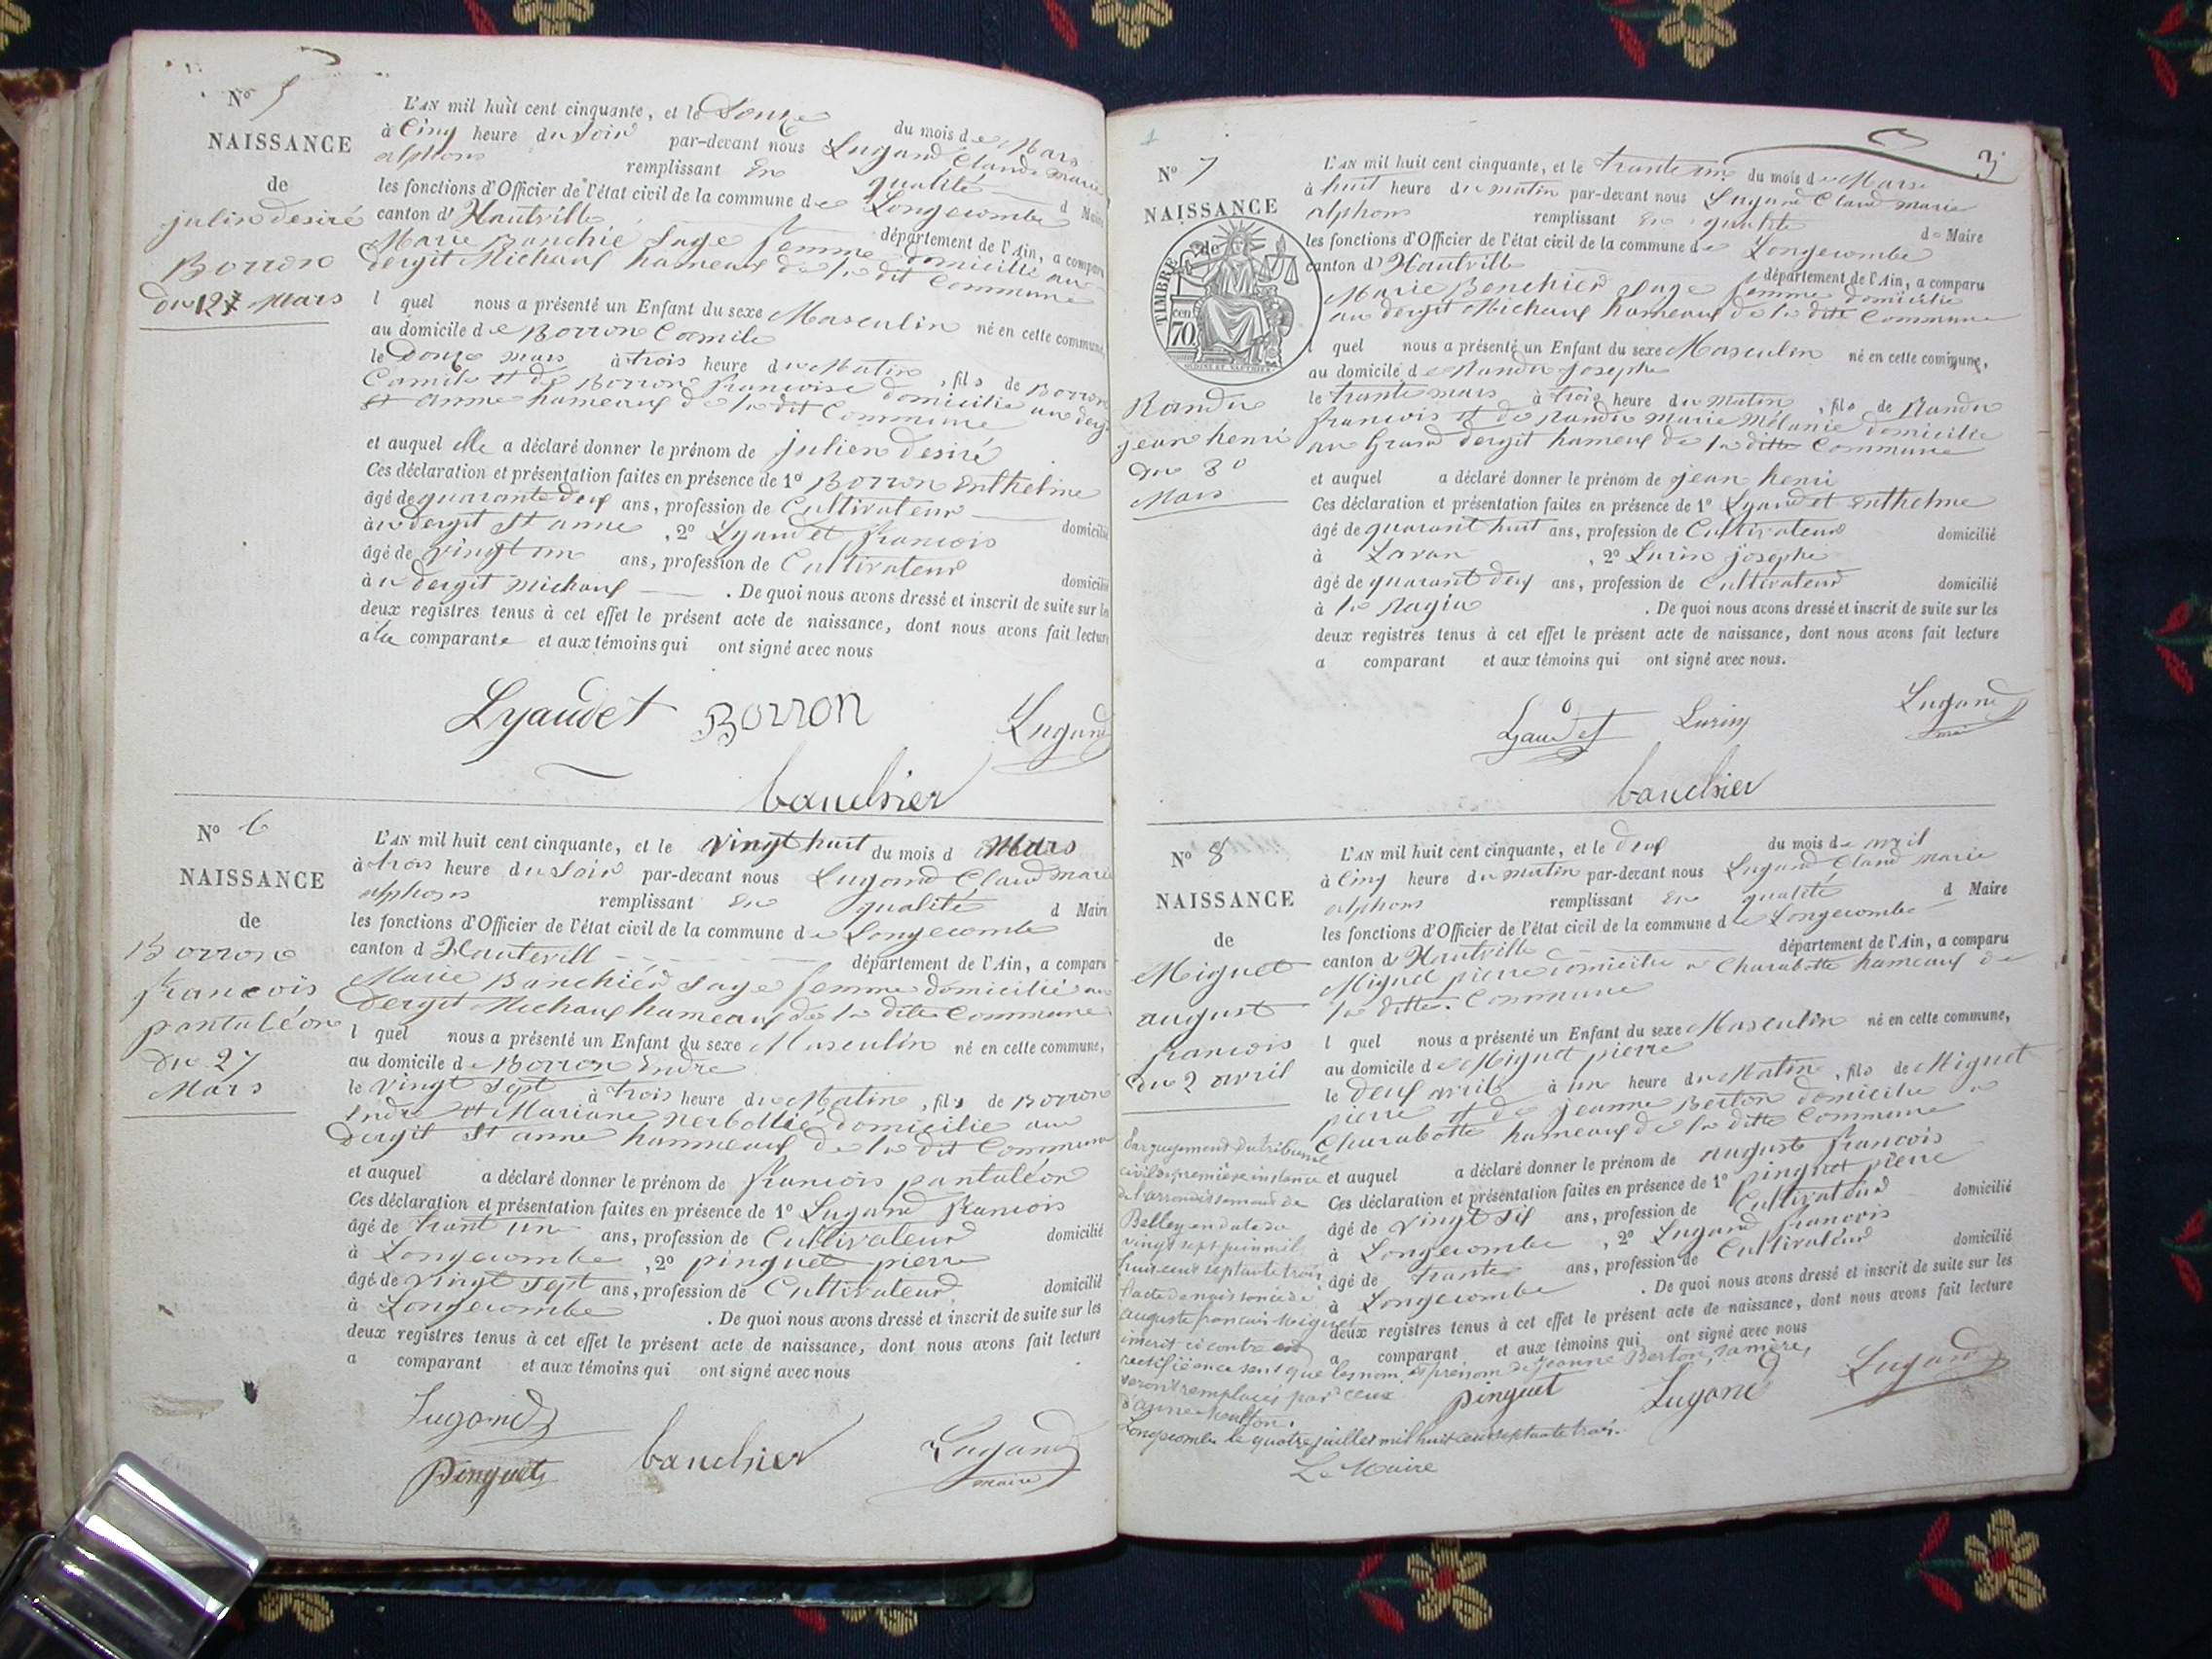 N° 5
NAISSANCE
de
julin desiré
Borron
du 12 Mars
L'AN mil huit cent cinquante, et le Douze du mois de Mars
à Cinq heure du Soir par-devant nous Lugand Claude marie
alphons remplissant En qualité d Maire
les fonctions d'Officier de l'état civil de la commune de Longecombe
canton d' Hautville département de l'Ain, a comparu
Marie Banchié Sage femme domicilié au
dergit Michaux hameaux de la dit Commune
l quel nous a présenté un Enfant du sexe Masculin né en cette commune,
au domicile de Borron Camile
le Douze mars à trois heure du Matin, fils de Borron
Camile et de Borron francoise domicilié au dergit
St anne hameaux de la dit Commune
et auquel elle a déclaré donner le prénom de julien desiré
Ces déclaration et présentation faites en présence de 1° Borron Enthelme
âgé de quarante deux ans, profession de Cultivateur domicilié
à u dergit St anne, 2° Lyaudet francois
âgé de vingt un ans, profession de Cultivateur domicilié
à u dergit michaux . De quoi nous avons dressé et inscrit de suite sur les
deux registres tenus à cet effet le présent acte de naissance, dont nous avons fait lecture
a la comparante et aux témoins qui ont signé avec nous
Lyaudet Borron Lugand
banchier
N° 6
NAISSANCE
de
Borron
francois
pantaléon
du 27
Mars
L'AN mil huit cent cinquante, et le vingt huit du mois d Mars
à trois heure du Soir par-devant nous Lugand Claud marie
alphons remplissant En qualité d Maire
les fonctions d'Officier de l'état civil de la commune de Longecombe
canton d Hautevill département de l'Ain, a comparu
Marie Banchiér Sage femme domicilié au
Dergit Michaux hameaux de la dite Commune
l quel nous a présenté un Enfant du sexe Masculin né en cette commune,
au domicile de Borron Endre
le vingt sept à trois heure du Matin, fils de Borron
Endre et Mariane domicilié au
Dergit St anne hammeaux de la dit Commune
et auquel a déclaré donner le prénom de francois pantaléon
Ces déclaration et présentation faites en présence de 1° Lugand francois
âgé de trant un ans, profession de Cultivateur domicilié
à Longecombe, 2° pinguet pierre
âgé de vingt sept ans, profession de Cultivateur domicilié
à Longecombe . De quoi nous avons dressé et inscrit de suite sur les
deux registres tenus à cet effet le présent acte de naissance, dont nous avons fait lecture
a comparant et aux témoins qui ont signé avec nous
Lugand
Pinguet banchier Lugand
maire
3
N° 7
NAISSANCE
de
TIMBRE
70 cen
Randu
jean henri
du 30
Mars
L'AN mil huit cent cinquante, et le trante un du mois de Mars
à huit heure du matin par-devant nous Lugand Claud marie
alphons remplissant En qualité de Maire
les fonctions d'Officier de l'état civil de la commune de Longecombe
canton d' Hautville département de l'Ain, a comparu
Marie Benchier Sage femme domicilié
au dergit Michaux hameaux de la dite Commune
l quel nous a présenté un Enfant du sexe Masculin né en cette commune,
au domicile de Randu josephe
le trante mars à trois heure du matin, fils de Randu
francois et de Randu Marie Mélanie domicilié
au Grand dergit hameux de la ditte Commune
et auquel a déclaré donner le prénom de jean henri
Ces déclaration et présentation faites en présence de 1° Lyaudet Enthelme
âgé de quarant huit ans, profession de Cultivateur domicilié
à Lavan, 2° Lurin josephe
âgé de quarant deux ans, profession de Cultivateur domicilié
à la Ragia . De quoi nous avons dressé et inscrit de suite sur les
deux registres tenus à cet effet le présent acte de naissance, dont nous avons fait lecture
a comparant et aux témoins qui ont signé avec nous.
Lyaudet Lurin Lugand
banchier
N° 8
NAISSANCE
de
Miguet
august
francois
du 2 avril
L'AN mil huit cent cinquante, et le deux du mois de avril
à Cinq heure du matin par-devant nous Lugand Claud marie
alphons remplissant En qualité d Maire
les fonctions d'Officier de l'état civil de la commune de Longecombe
canton d' Hautville département de l'Ain, a comparu
Miguet pierre domicilie a Charabotte hameaux de
la ditte Commune
l quel nous a présenté un Enfant du sexe Masculin né en cette commune,
au domicile de Miguet pierre
le deux avril à un heure du Matin, fils de Miguet
pierre et de jeanne Berton domicilie a
Charabotte hameaux de la ditte Commune
et auquel a déclaré donner le prénom de auguste francois
Ces déclaration et présentation faites en présence de 1° pinguet pierre
âgé de vingt six ans, profession de Cultivateur domicilié
à Longecombe, 2° Lugand francois
âgé de trante ans, profession de Cultivateur domicilié
à Longecombe . De quoi nous avons dressé et inscrit de suite sur les
deux registres tenus à cet effet le présent acte de naissance, dont nous avons fait lecture
a comparant et aux témoins qui ont signé avec nous
Pinguet Lugand Lugand
Par jugement du tribunal
civil de première instance
de l'arrondissement de
Belley en date du
vingt sept juin mil
huit cent septante trois
l'acte de naissance de
auguste francois Miguet
inscrit ci contre est
rectifié en ce sens que les nom et prénom de Jeanne Berton, sa mère,
seront remplacés par ceux
Longecombe le quatre juillet mil huit cent septante trois.
Le Maire